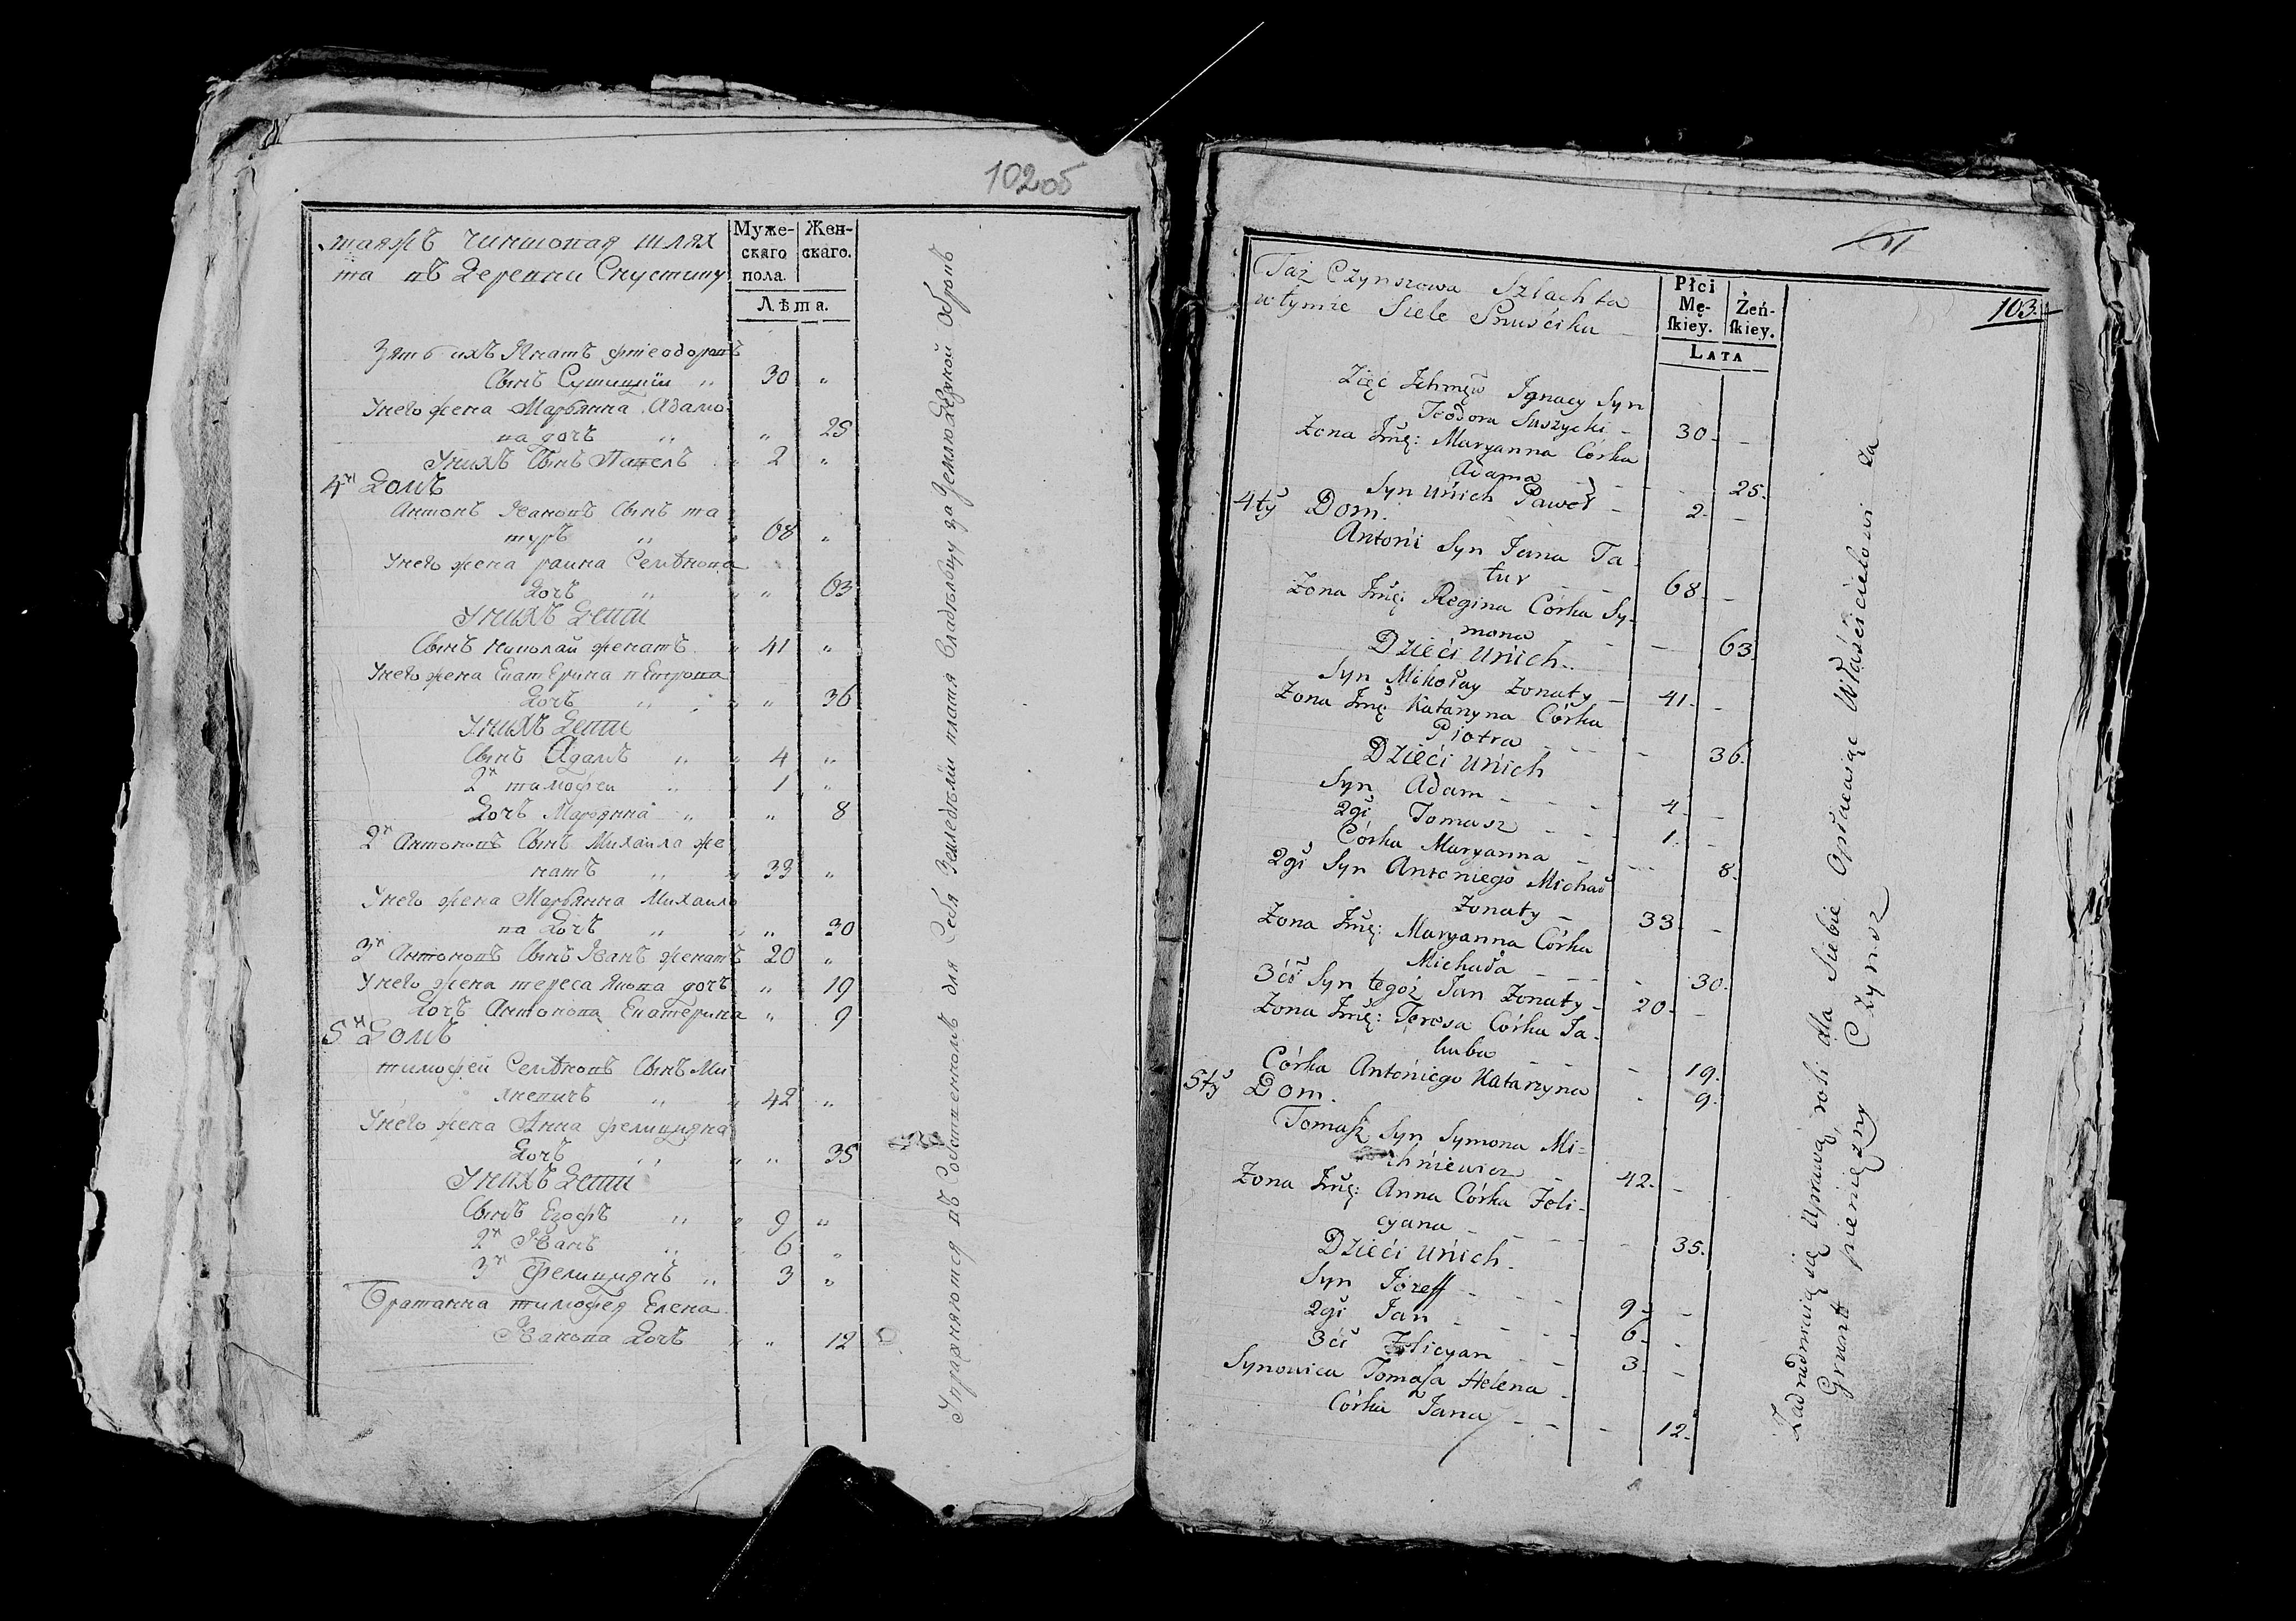 102об
таяжъ чиншовая шлях
та въ Деревни Снустику
Муже-
скаго
пола.
Жен-
скаго.
Лѣта.
Зять ихъ Игнатъ фтеодоровъ
Сынъ Сушицкій „ 30 „
Унего жена Марьянна Адамо-
ва дочь „ „ 25
Унихъ Сынъ Павелъ „ 2 „
4й Домъ
Антонъ Ивановъ Сынъ та
туръ „ „ 68 „
Унего жена раина Семѣнова
Дочь „ „ „ 63
Унихъ Дети
Сынъ николай женатъ „ 41 „
Унего жена Екатерина петрова
Дочь „ „ „ 36
Унихъ Дети
Сынъ Адамъ „ „ 4 „
2й тимофеи „ 1 „
Дочь Марьянна „ „ 8
2й Антоновъ Сынъ Михаила же
натъ „ „ 33 „
Унего жена Марьянна Михаило
ва Дочь „ „ „ 30
3й Антоновъ Сынъ Иванъ женатъ 20 „
Унего жена тереса Якова дочь „ 19
Дочь Антонова Екатерина „ 9
5й Домъ
тимофей Семѣновъ Сынъ Ми
хневичь „ „ 42 „
Унего жена Анна фелицияна
Дочь „ „ „ 35
Унихъ Дети
Сынъ Егофъ „ „ 9 „
2й Иванъ „ „ 6 „
3й Фелициянъ „ 3 „
Братанна тимофея Елена
Иванова Дочь „ „ 12
Упражняются въ Собственномъ для Себя Земледѣліи платя Владѣльцу за Землю Денежной оброкъ
103.
Taż Czynszowa Szlachta
w tymże Siele Snuściku
Płci
Mę-
skiey.
Żeń-
skiey.
LATA
Zięć Ichmęw Ignacy Syn
Teodora Suszycki - 30. -
Żona Jmę: Maryanna Córka
Adama - - - 25.
Syn Unich Paweł - 2. -
4ty Dom.
Antoni Syn Jana Ta-
tur - 68. -
Żona Jmę: Regina Córka Sy-
mona - - 63.
Dzieci Unich.
Syn Mikołay Żonaty - 41. -
Żona Jmę Katarzyna Córka
Piotra - - - - 36.
Dzieci Unich
Syn Adam - - - 4. -
2gi Tomasz - - - 1. -
Córka Maryanna - - - 8.
2gi Syn Antoniego Michał
Żonaty - 33. -
Żona Jmę: Maryanna Córka
Michała - - - - 30.
3ci Syn tegoż Jan Żonaty - 20. -
Żona Jmę: Teresa Córka Ja-
kuba - - - 19.
Córka Antoniego Katarzyna - 9.
5ty Dom.
Tomasz Syn Symona Mi-
chniewicz - 42. -
Żona Jmę: Anna Córka Feli-
cyana - - - - 35.
Dzieci Unich.
Syn Jozeff - - - 9. -
2gi Jan - - - - 6. -
3ci Felicyan - - 3. -
Synowica Tomasza Helena -
Córka Jana - - - 12.
Zadrudniaią się Uprawą roli dla Siebie Opłacaiąc Właścicielowi za
Grunt pieniężny Czynsz